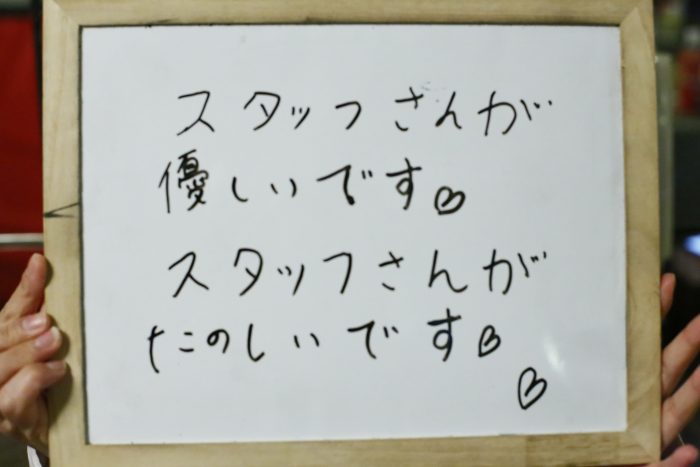 スタッフさんが
優しいです♡
スタッフさんが
たのしいです♡
♡